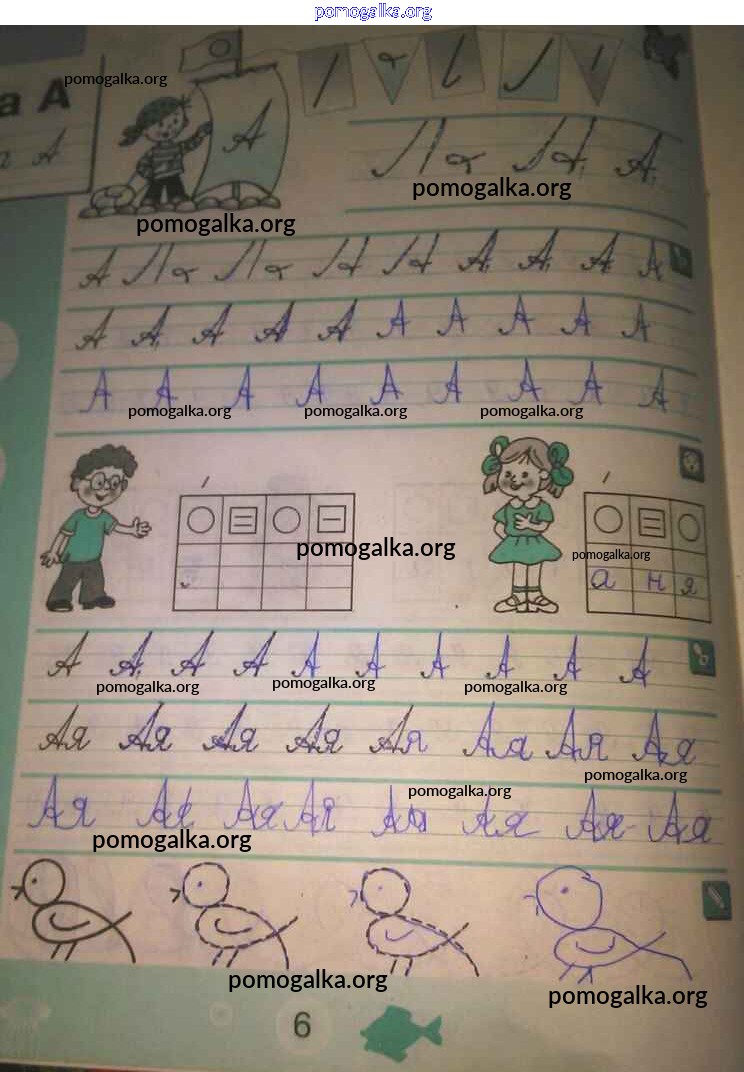 pomogalka.org
pomogalka.org
а А
А
А
А
pomogalka.org
pomogalka.org
А А А А А
А А А А А А А А А А
А А А А А А А А А
pomogalka.org pomogalka.org pomogalka.org
pomogalka.org
pomogalka.org
а н я
А А А А А А А А А А
pomogalka.org pomogalka.org pomogalka.org
Ая Ая Ая Ая Ая Ая Ая Ая
pomogalka.org
pomogalka.org
Ая Ая Ая Ая Ая Ая Ая Ая
pomogalka.org
pomogalka.org
pomogalka.org
6